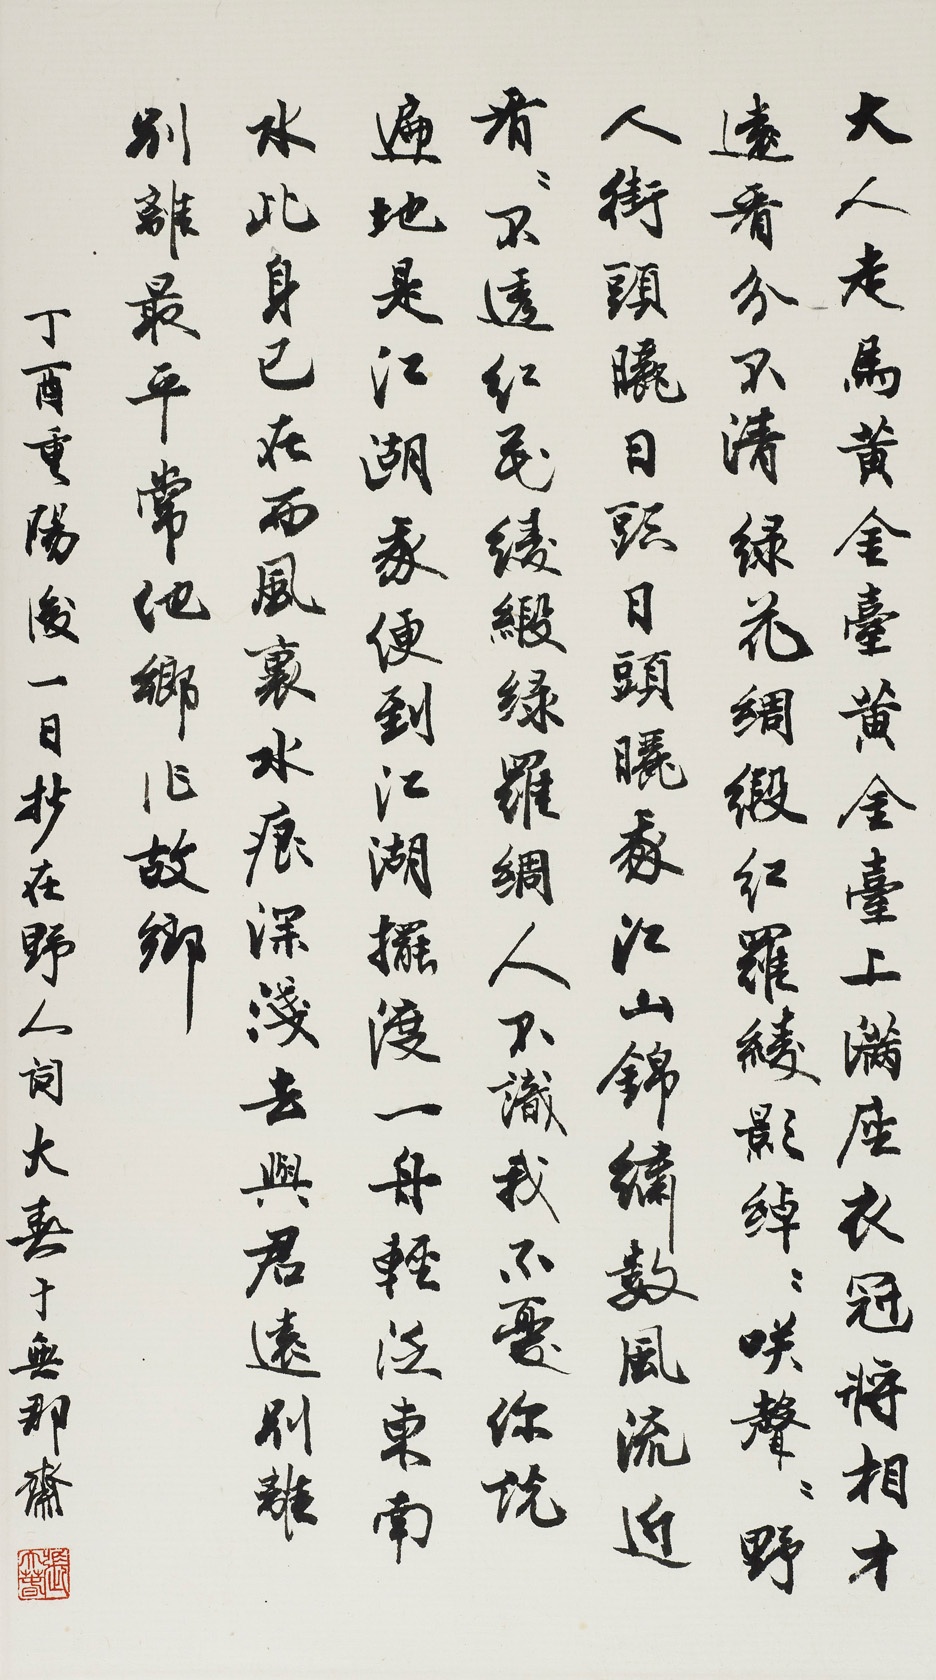 大人走馬黄金臺黄金臺上满座衣冠將相才
遠看分不清绿花綢緞紅羅綾影綽〻咲聲〻野
人街頭曬日頭日頭曬我江山錦繡數風流近
看〻不透紅花綾緞绿羅綢人不識我不憂你説
遍地是江湖我便到江湖擺渡一舟輕泛東南
水此身已在西風裏水痕深淺去與君遠別離
別離最平常他鄉作故鄉
丁酉重陽後一日抄在野人詞大春于無那齋